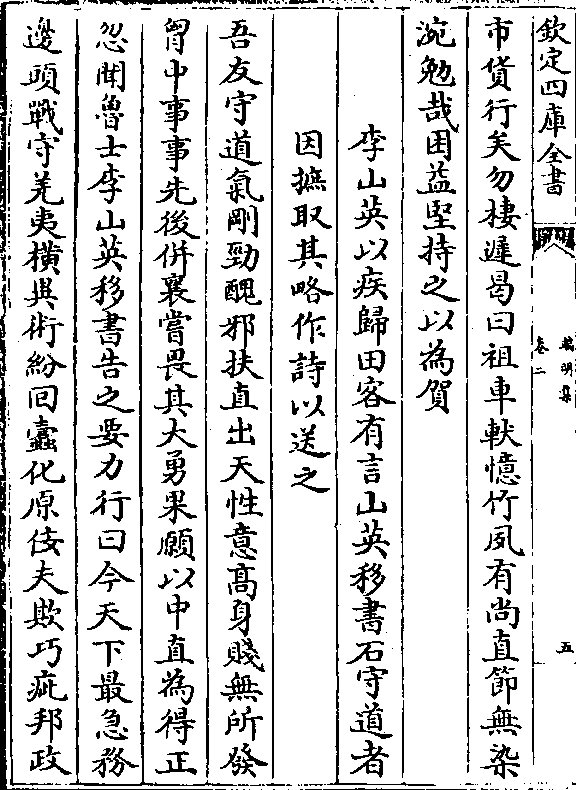 欽定四庫全書
端明集
卷二
五
市貨行矣勿棲遲曷曰祖車軑憶竹夙有尚直節無染
涴勉哉困益堅持之以為賀
李山英以疾歸田客有言山英移書石守道者
因摭取其略作詩以送之
吾友守道氣剛勁醜邪扶直出天性意髙身賤無所發
胷中事事先後併襄嘗畏其大勇果願以中直為得正
忽聞魯士李山英移書告之要力行曰今天下最急務
邊頭戰守羌夷橫異術紛回蠧化原佞夫欺巧疵邦政